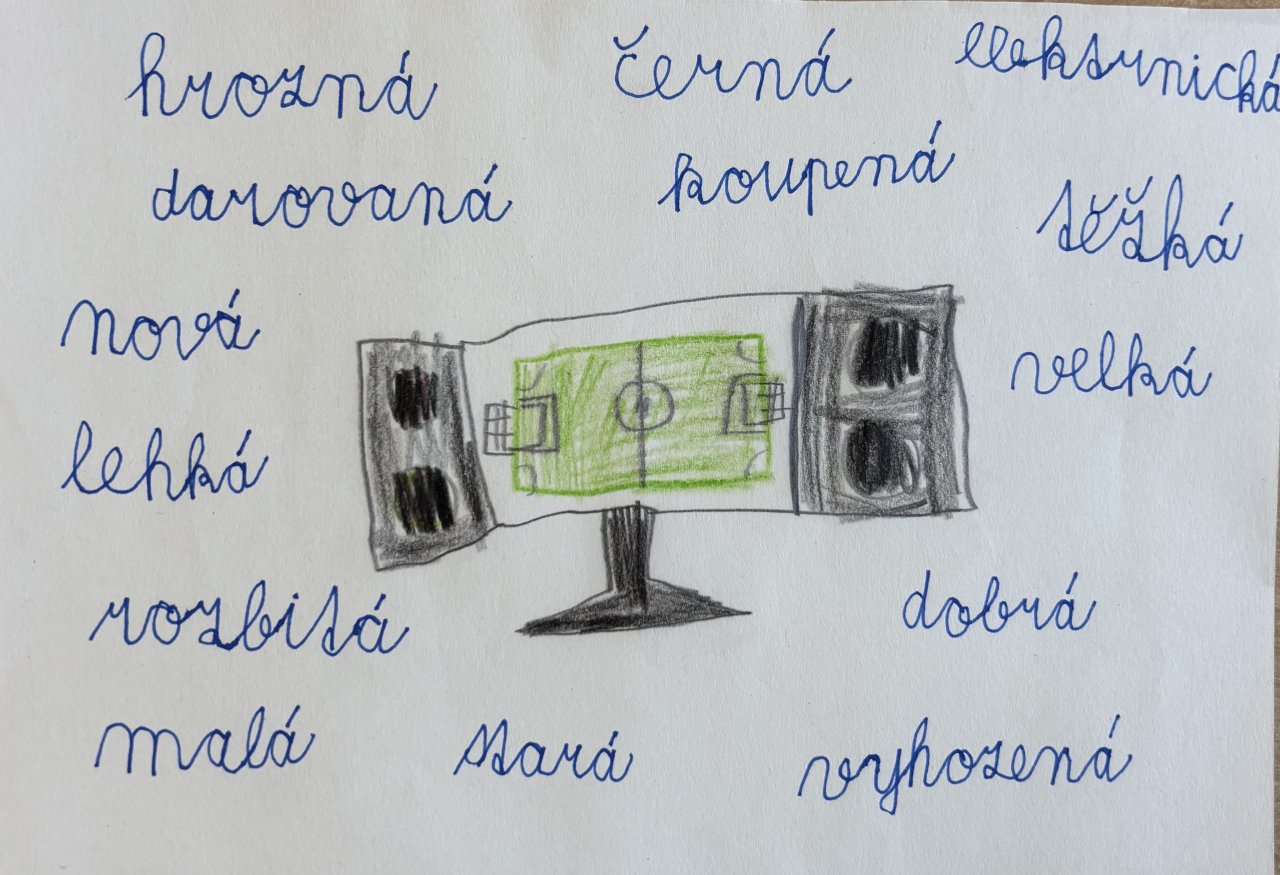 hrozná
černá
elektrnická
darovaná
koupená
těžká
nová
velká
lehká
rozbitá
dobrá
malá
stará
vyhozená